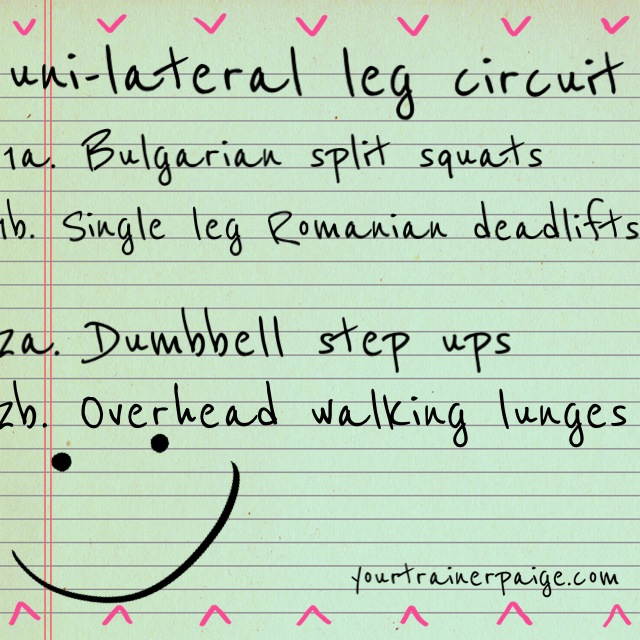 uni-lateral leg circuit
1a. Bulgarian split squats
1b. Single leg Romanian deadlifts
2a. Dumbbell step ups
2b. Overhead walking lunges
yourtrainerpaige.com